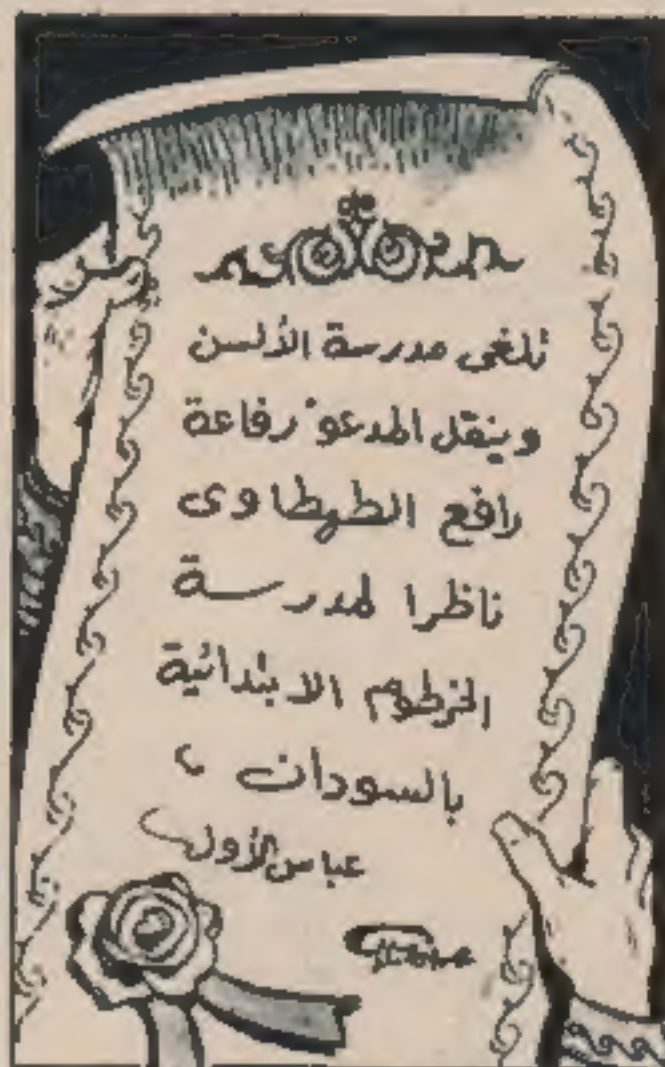 تلغى مدرسة الألسن
وينقل المدعو رفاعة
رافع الطهطاوى
ناظرا لمدرسة
الخرطوم الابتدائية
بالسودان ،
عباس الأول